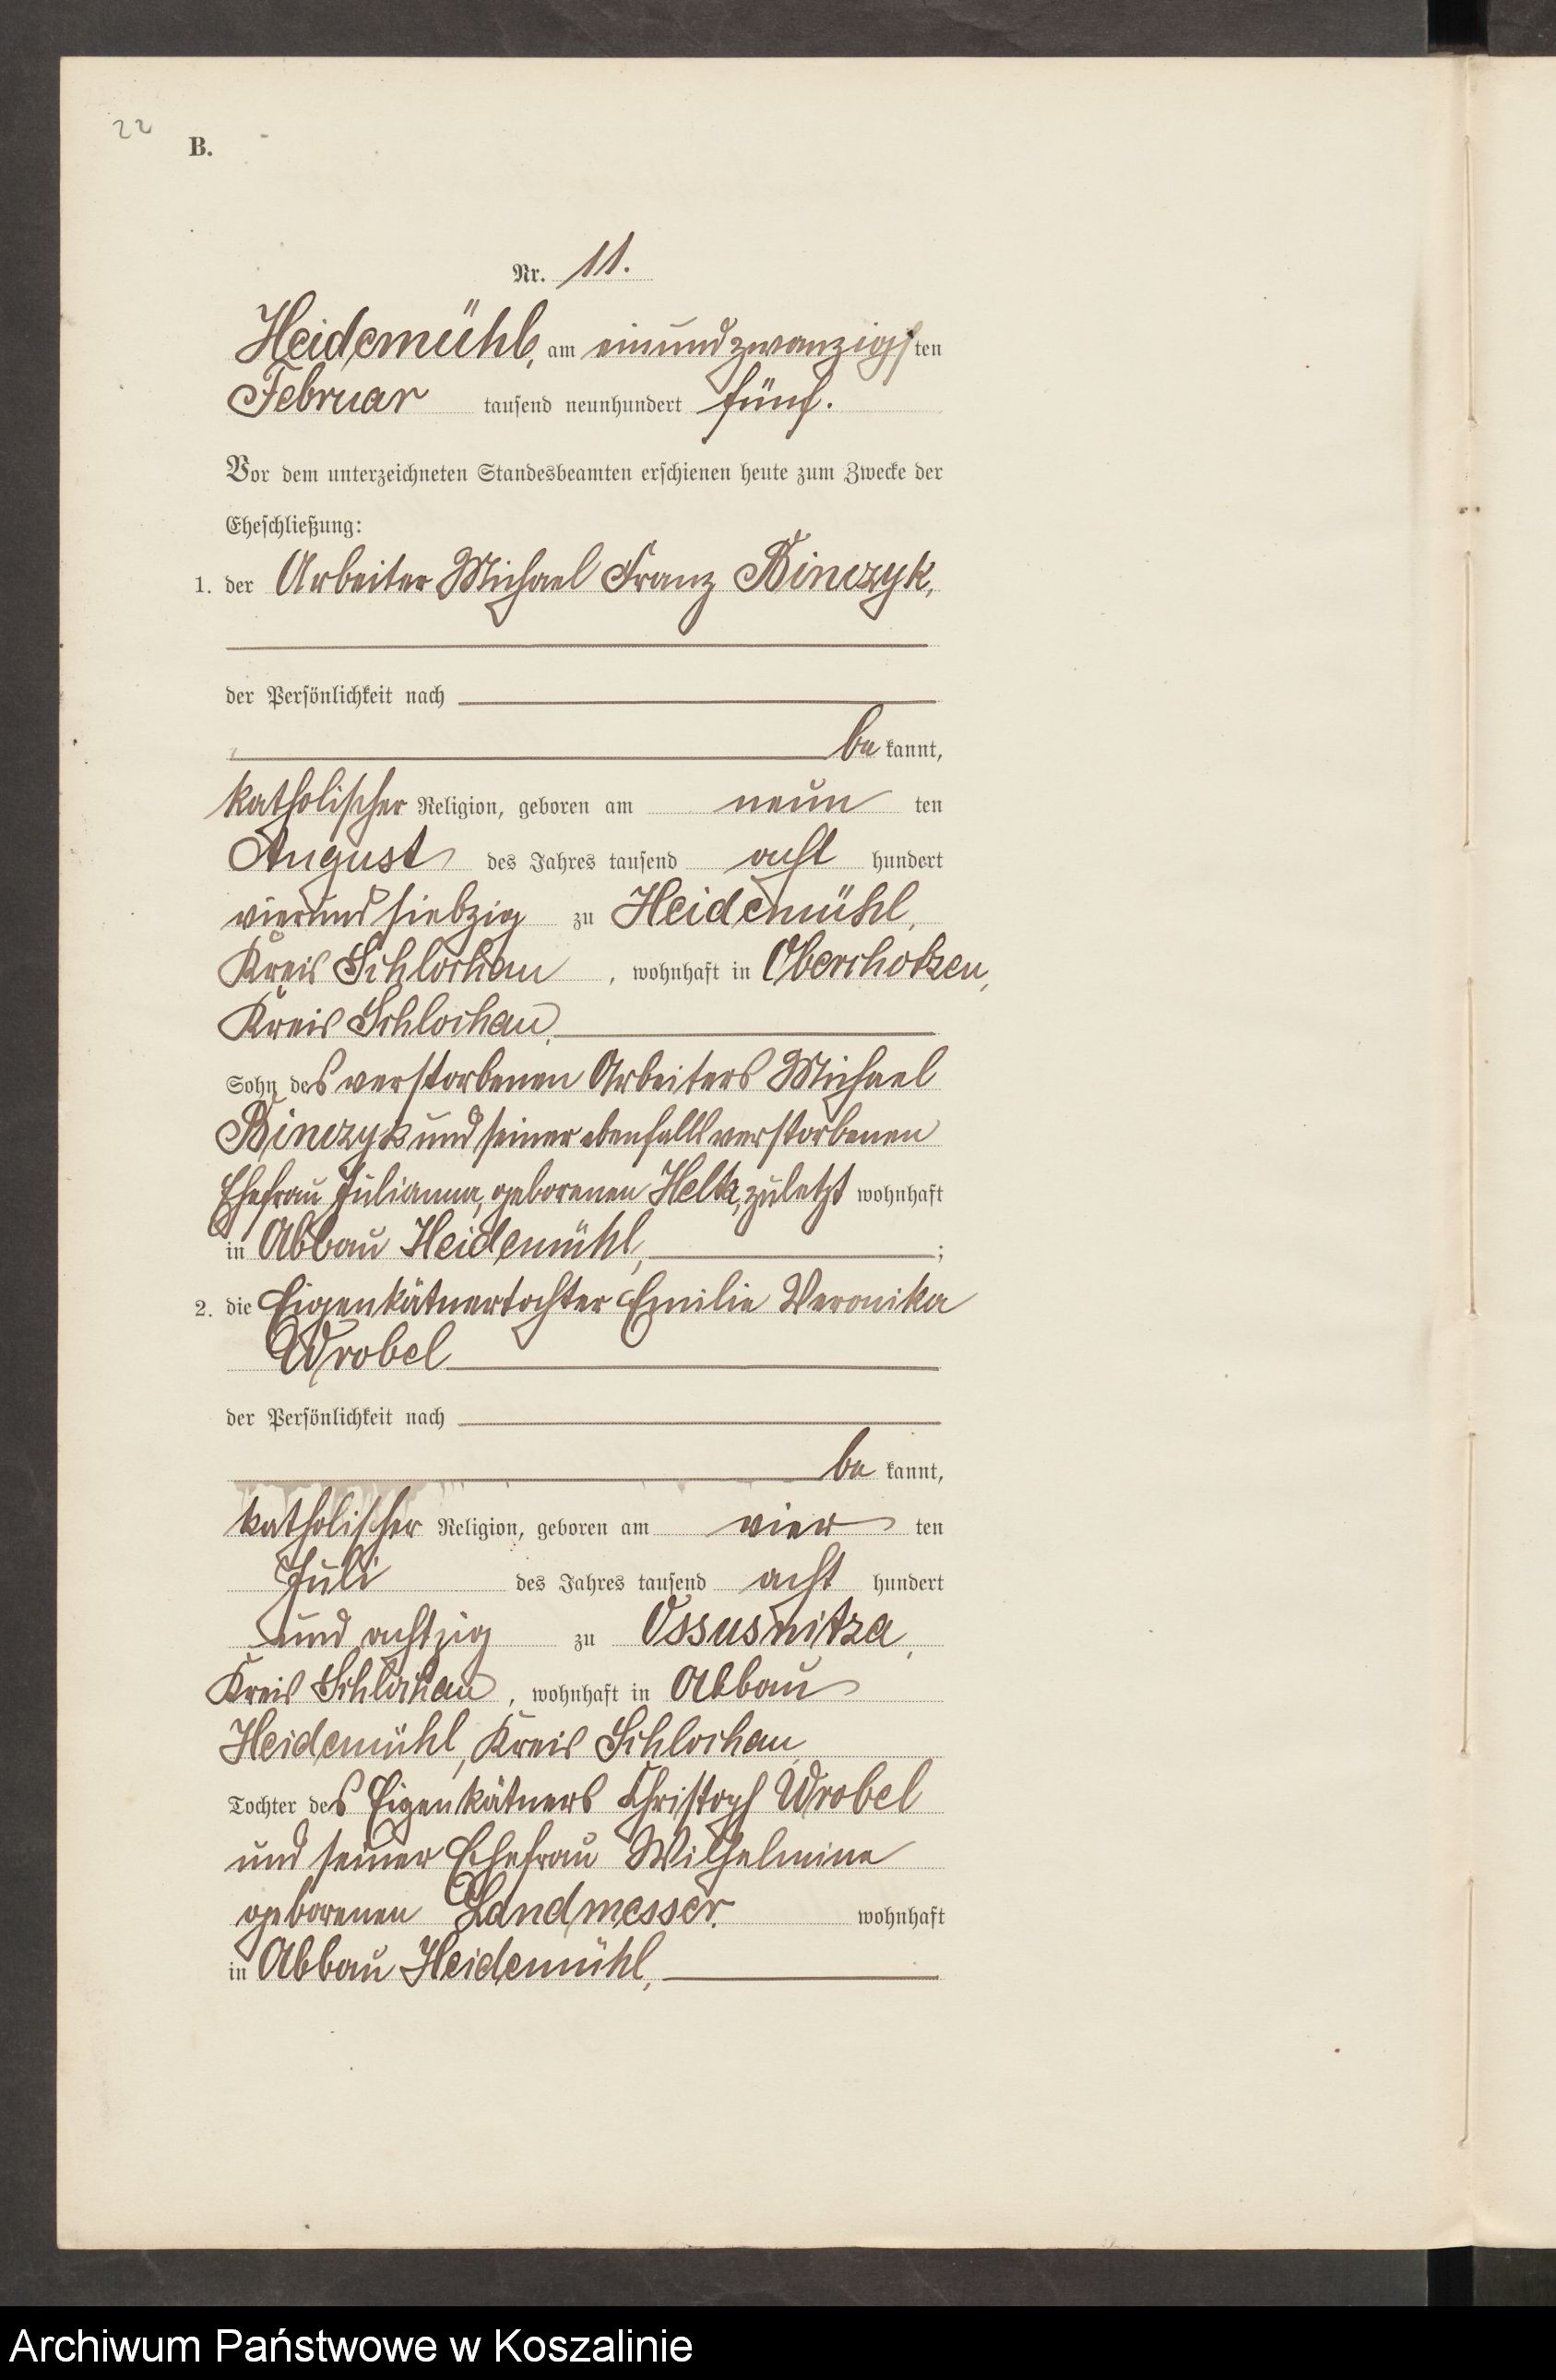 22
B.
Nr. 11.
Heidemühl, am einundzwanzigsten
Februar tausend neunhundert fünf.
Vor dem unterzeichneten Standesbeamten erschienen heute zum Zwecke der
Eheschließung:
1. der Arbeiter Michael Franz Binczyk,
der Persönlichkeit nach
be kannt,
katholischer Religion, geboren am neun ten
August des Jahres tausend acht hundert
vierundsiebzig zu Heidemühl,
Kreis Schlochau, wohnhaft in Oberchotzen,
Kreis Schlochau,
Sohn des verstorbenen Arbeiters Michael
Binczyk und seiner ebenfalls verstorbenen
Ehefrau Julianna, geborenen Helta, zuletzt wohnhaft
in Abbau Heidemühl, ;
2. die Eigenkätnertochter Emilie Veronika
Wrobel
der Persönlichkeit nach
be kannt,
katholischer Religion, geboren am vier ten
Juli des Jahres tausend acht hundert
und achtzig zu Ossusnitza,
Kreis Schlochau, wohnhaft in Abbau
Heidemühl, Kreis Schlochau,
Tochter des Eigenkätners Christoph Wrobel
und seiner Ehefrau Wilhelmine
geborenen Landmesser. wohnhaft
in Abbau Heidemühl,
Archiwum Państwowe w Koszalinie